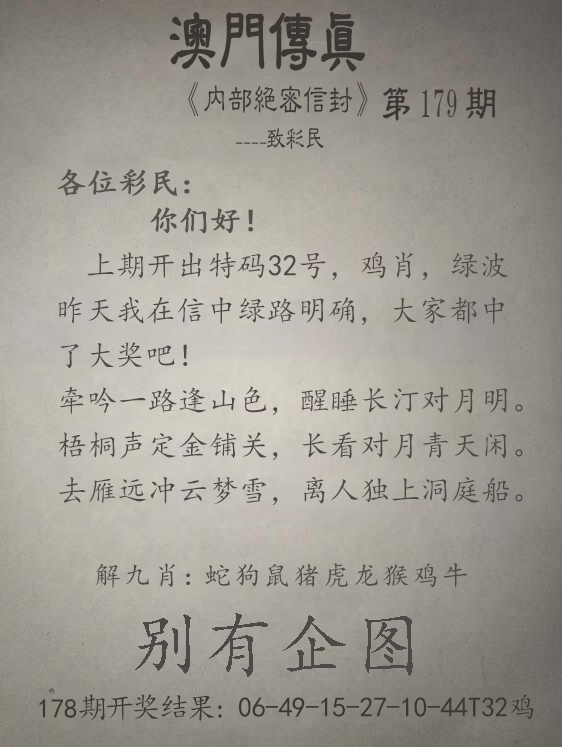 澳門傳真
《内部絕密信封》第179期
----致彩民
各位彩民：
你们好！
上期开出特码32号，鸡肖，绿波
昨天我在信中绿路明确，大家都中
了大奖吧！
牵吟一路逢山色，醒睡长汀对月明。
梧桐声定金铺关，长看对月青天闲。
去雁远冲云梦雪，离人独上洞庭船。
解九肖：蛇狗鼠猪虎龙猴鸡牛
别有企图
178期开奖结果：06-49-15-27-10-44T32鸡